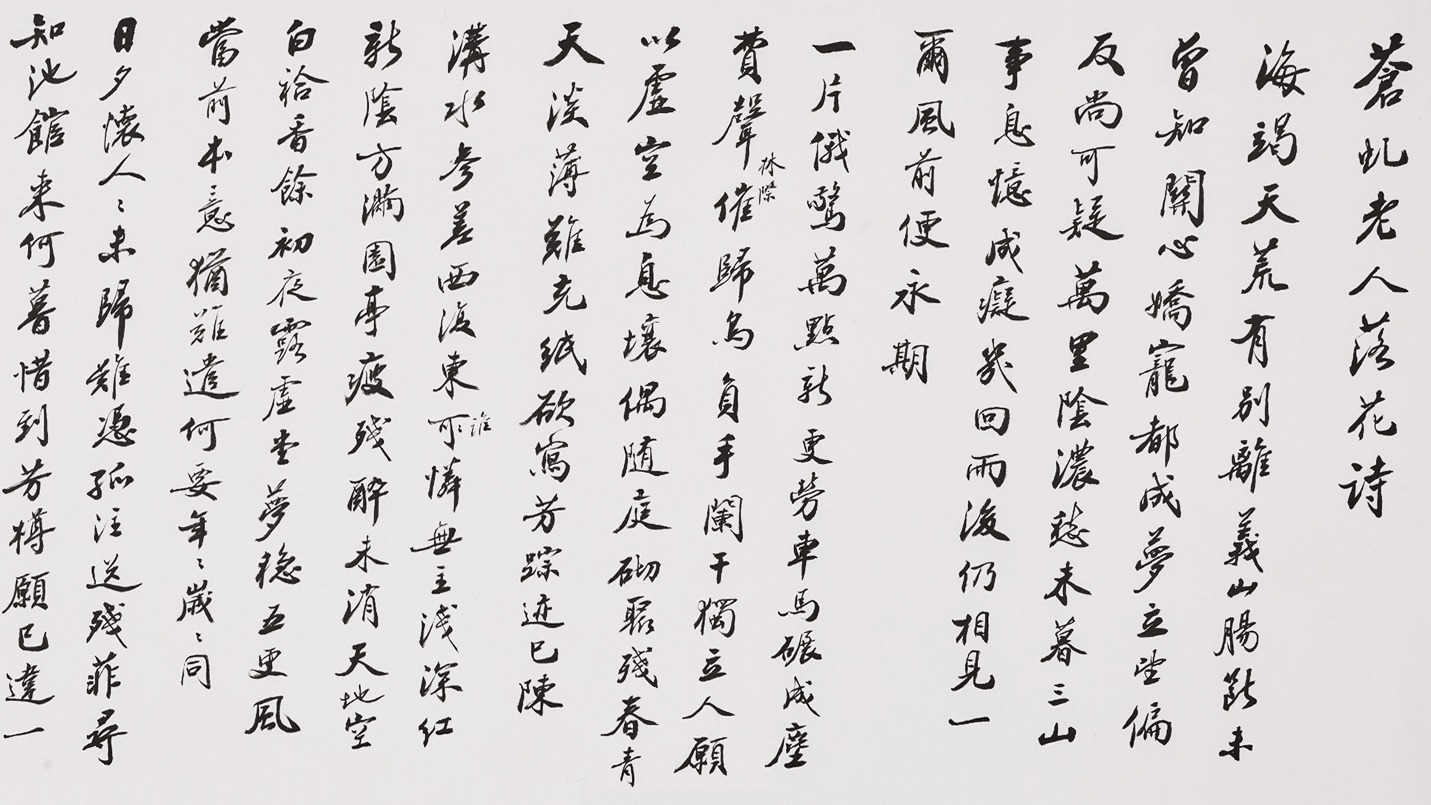 蒼虬老人落花詩
海竭天荒有別離義山腸斷未
曾知關心嬌寵都成夢立望偏
反尚可疑萬里陰濃愁未暮三山
事息憶成癡幾回雨後仍相見一
爾風前便永期
一片俄驚萬點新更勞車馬碾成塵
費聲催歸烏負手闌干獨立人願
林際
以虛空為息壤偶隨庭砌聚殘春青
天淡薄難充紙欲寫芳蹤迹已陳
溝水參差西復東可憐無主淺深紅
誰
新陰方滿園亭瘦殘醉未消天地空
白袷香餘初夜露虛堂夢穩五更風
當前本意猶難遣何要年〻歲〻同
日夕懷人〻未歸難憑孤注送殘菲尋
知池館来何暮惜到芳樽願已違一